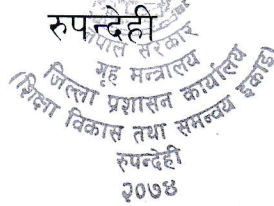 रुपन्देही
नेपाल सरकार
गृह मन्त्रालय
जिल्ला प्रशासन कार्यालय
(शिक्षा विकास तथा समन्वय इकाई)
रुपन्देही
२०७४